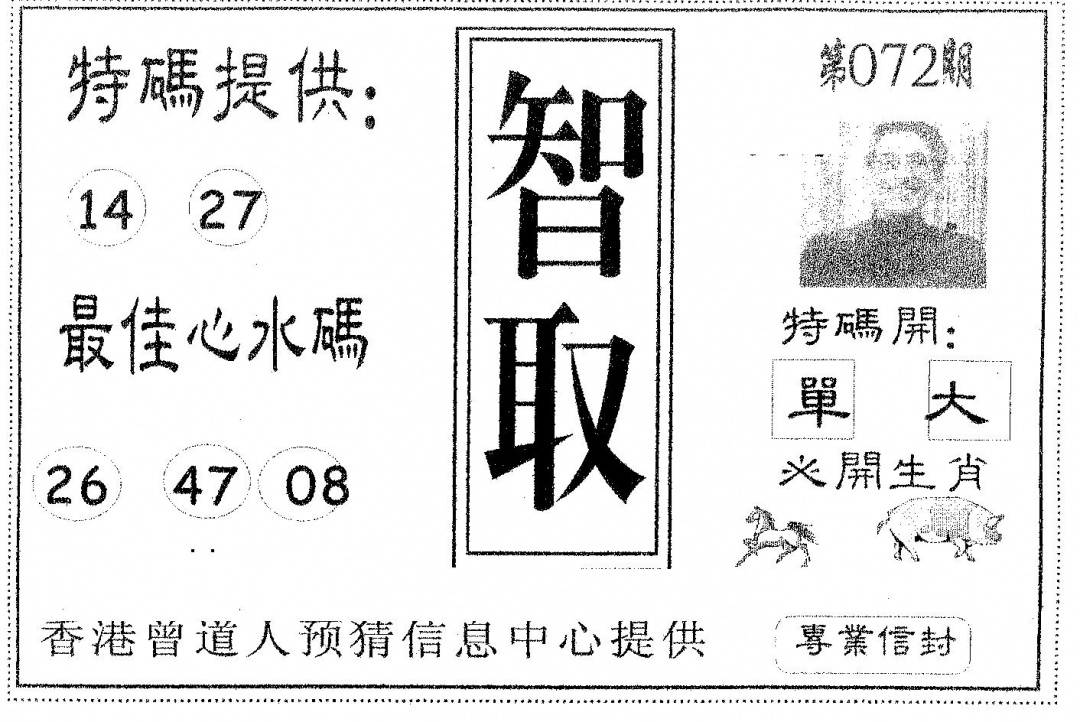 特碼提供：
14 27
最佳心水碼
26 47 08
智取
第072期
特碼開：
單 大
必開生肖
香港曾道人预猜信息中心提供
專業信封